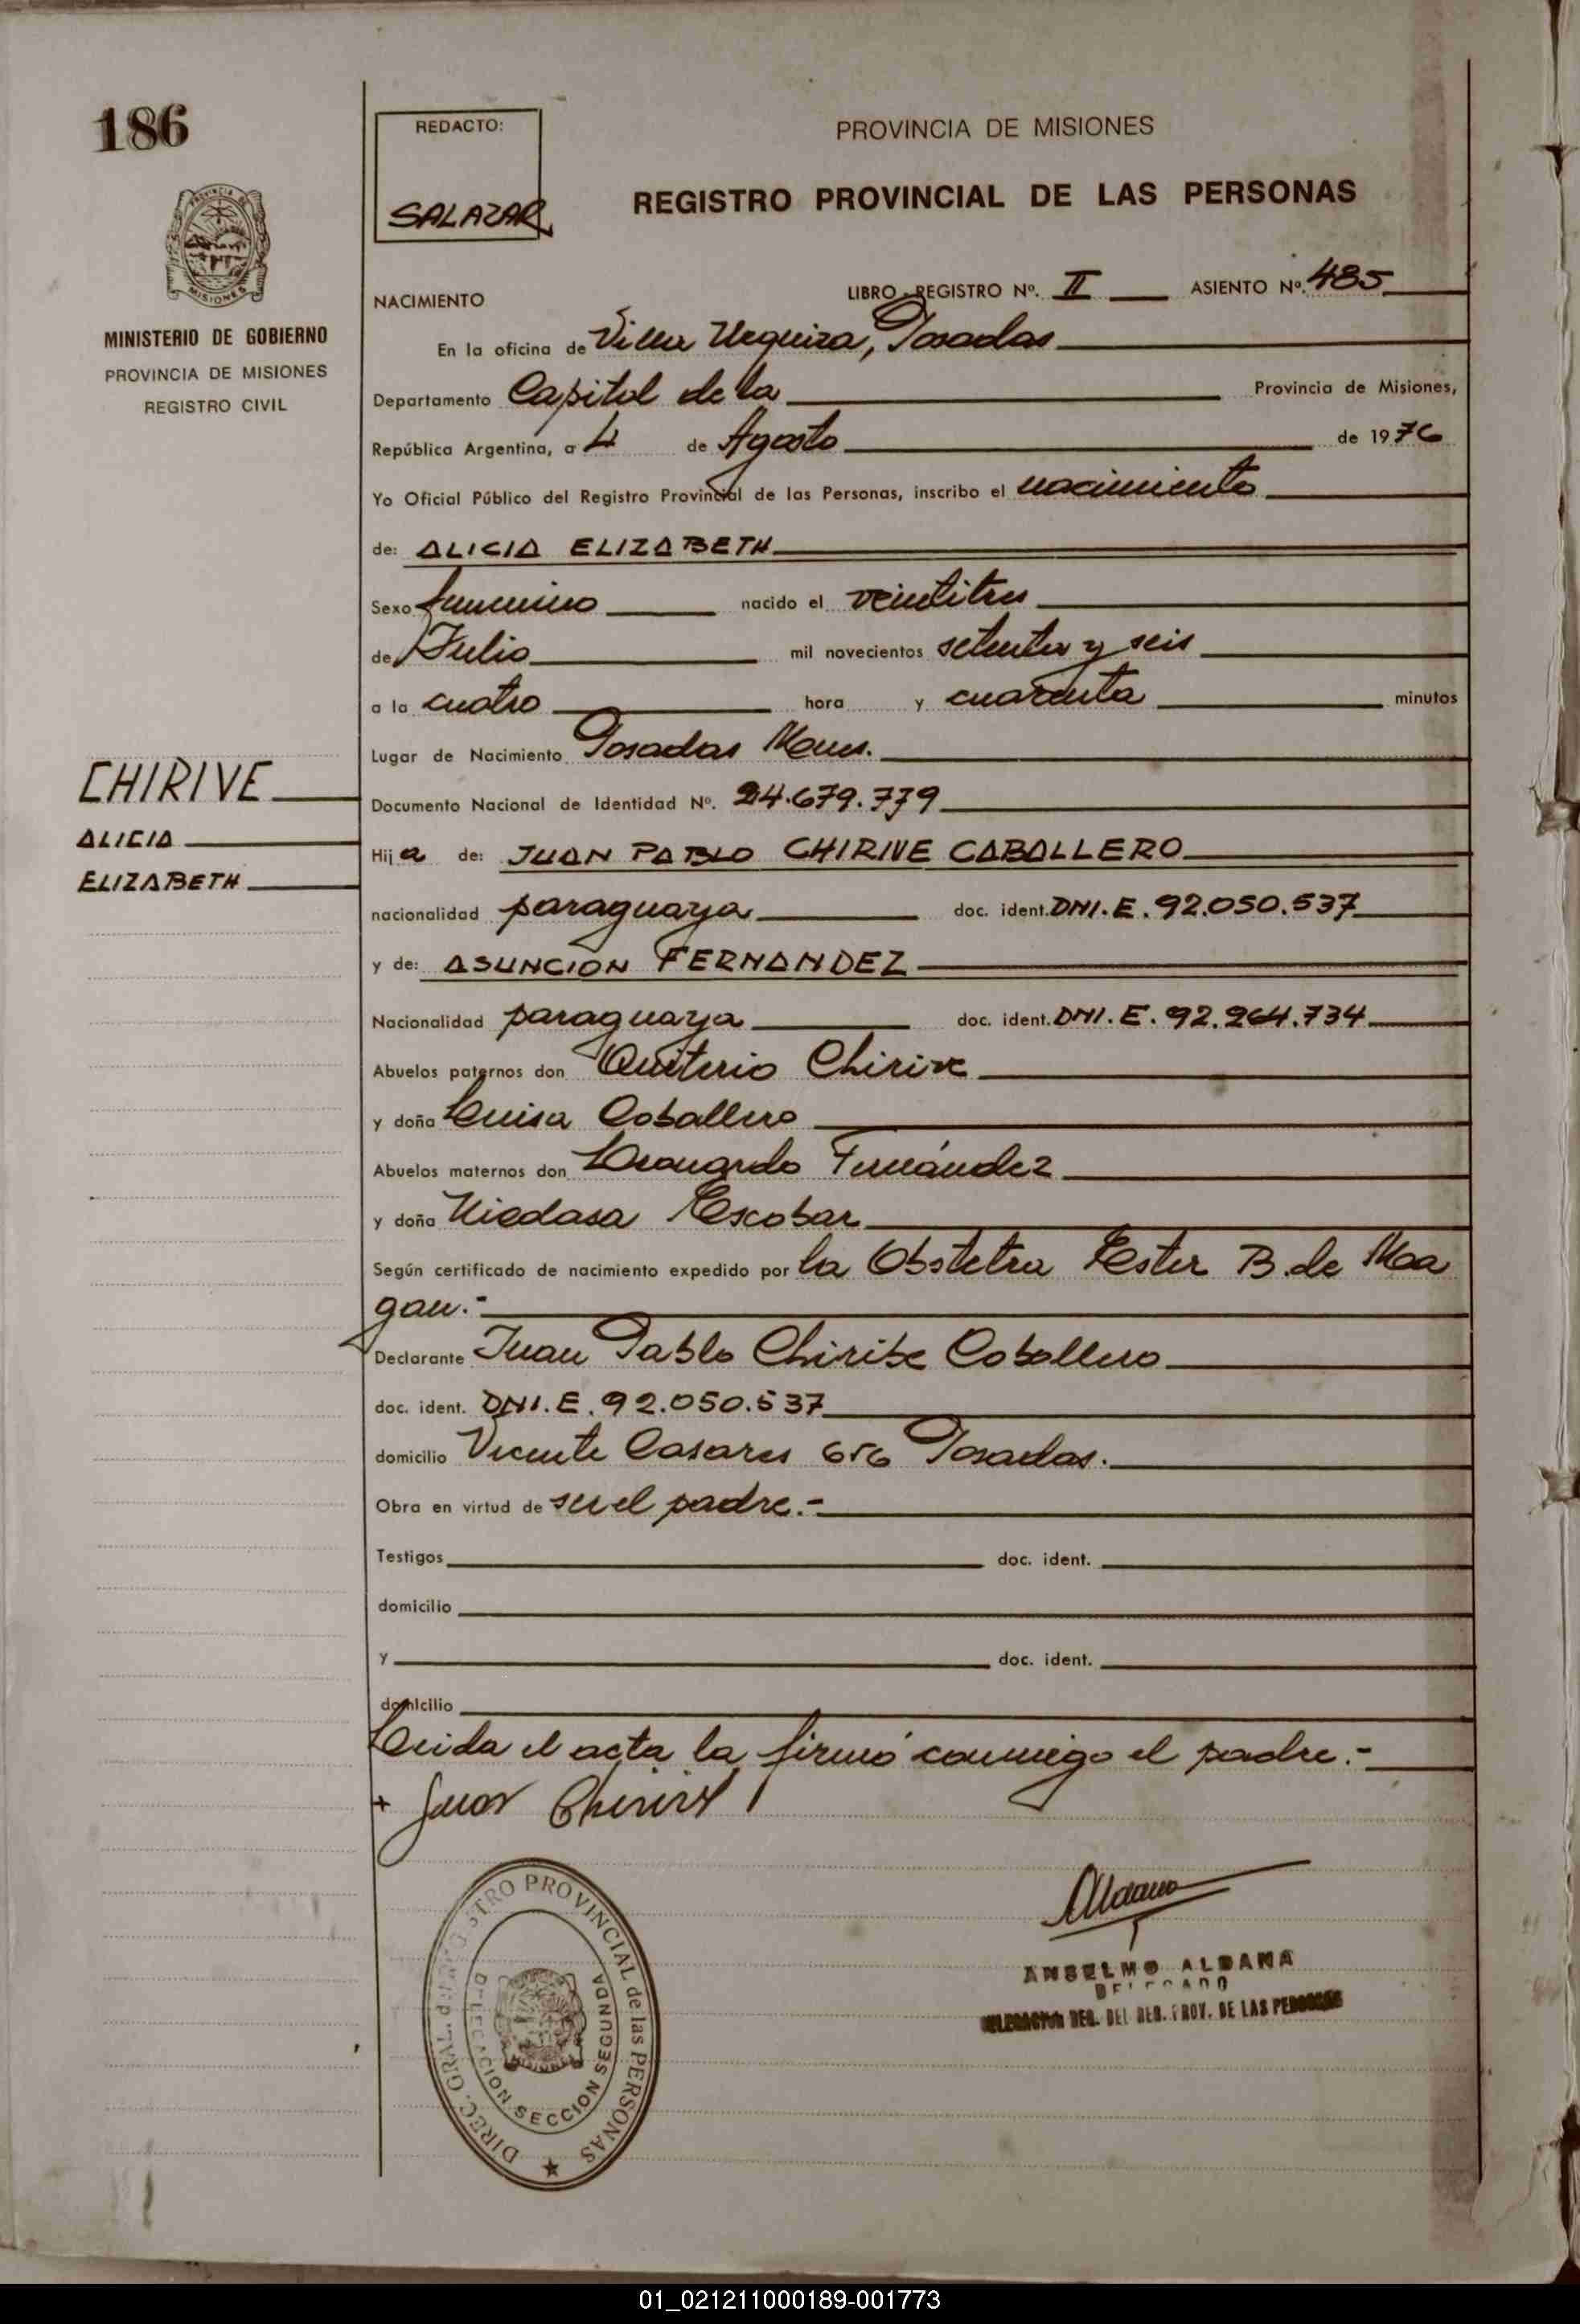 186
REDACTO:
SALAZAR
PROVINCIA DE MISIONES
REGISTRO PROVINCIAL DE LAS PERSONAS
MISIONES
MINISTERIO DE GOBIERNO
PROVINCIA DE MISIONES
REGISTRO CIVIL
NACIMIENTO
LIBRO - REGISTRO Nº. II ASIENTO Nº. 485
En la oficina de Villa Urquiza, Posadas
Departamento Capital de la Provincia de Misiones,
República Argentina, a 4 de Agosto de 1976
Yo Oficial Público del Registro Provincial de las Personas, inscribo el nacimiento
de: ALICIA ELIZABETH
Sexo femenino nacido el veintitres
de Julio mil novecientos setenta y seis
a la cuatro hora y cuarenta minutos
Lugar de Nacimiento Posadas
CHIRIVE
ALICIA
ELIZABETH
Documento Nacional de Identidad Nº. 24.679.779
Hija de: JUAN PABLO CHIRIVE CABALLERO
nacionalidad paraguaya doc. ident. DNI. E. 92.050.537
y de: ASUNCION FERNANDEZ
Nacionalidad paraguaya doc. ident. DNI. E. 92.264.734
Abuelos paternos don Quiterio Chirive
y doña Luisa Caballero
Abuelos maternos don Leonardo Fernández
y doña Escobar
Según certificado de nacimiento expedido por la Obstetra Ester B. de
gan.-
Declarante Juan Pablo Chiribe Caballero
doc. ident. DNI. E. 92.050.537
domicilio Vicente Casares 656 Posadas.
Obra en virtud de ser el padre.-
Testigos doc. ident.
domicilio
y doc. ident.
domicilio
Leida el acta la firmó conmigo el padre.-
+ Juan Chirive
DIREC. GRAL. REGISTRO PROVINCIAL de las PERSONAS
DELEGACION SECCION SEGUNDA
Aldana
ANSELMO ALDANA
DELEGADO
DEL REG. PROV. DE LAS PERSONAS
01_021211000189-001773